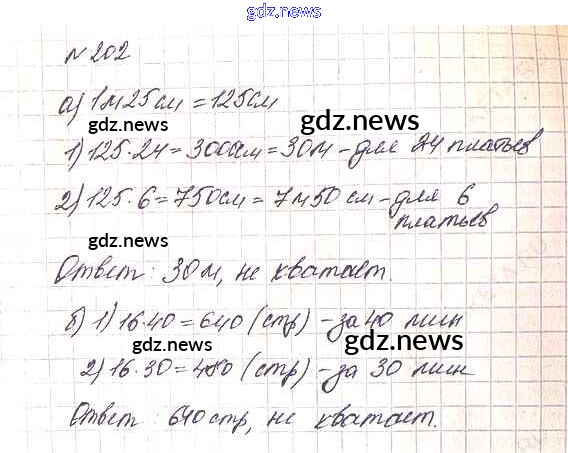 gdz.news
№ 202
а) 1м 25см = 125см
gdz.news gdz.news
1) 125·24 = 3000см = 30м - для 24 платьев
2) 125·6 = 750см = 7м 50 см - для 6
платьев
gdz.news
Ответ: 30м, не хватает.
б) 1) 16·40 = 640 (стр) - за 40 мин
gdz.news gdz.news
2) 16·30 = 480 (стр) - за 30 мин
Ответ: 640стр, не хватает.